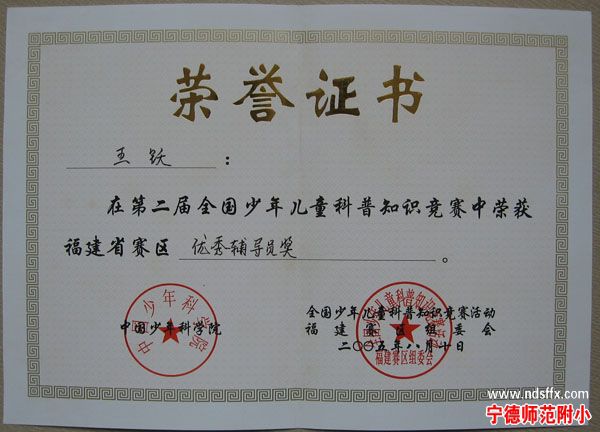 荣誉证书
王跃：
在第二届全国少年儿童科普知识竞赛中荣获
福建省赛区 优秀辅导员奖。
中国少年科学院
中国少年科学院
全国少年儿童科普知识竞赛活动
福建赛区组委会
二〇〇五年八月十日
福建赛区组委会
www.ndsffx.com
宁德师范附小